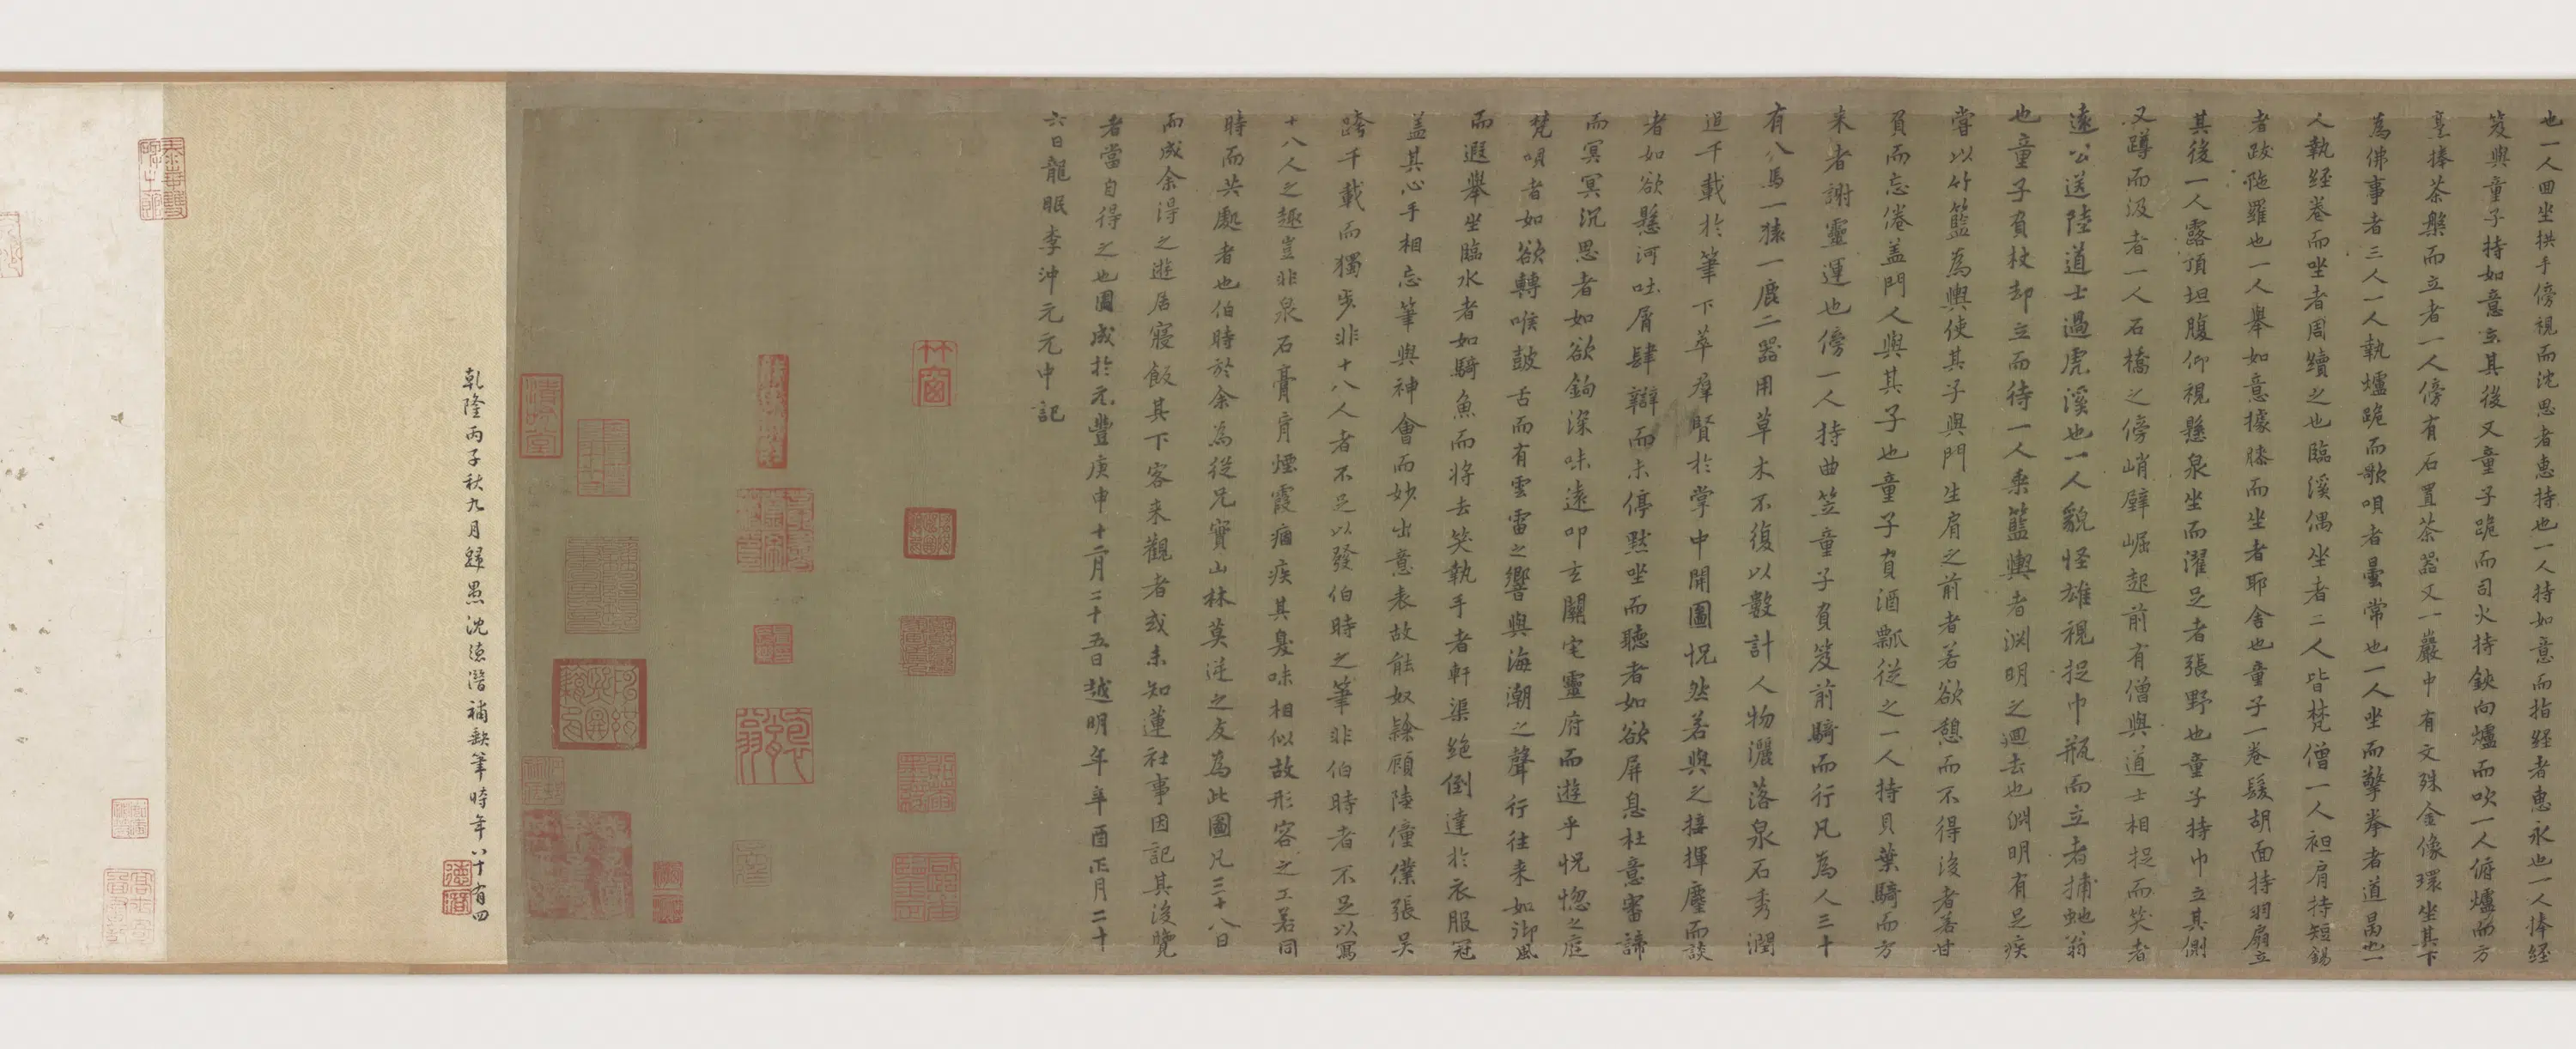 也一人回坐拱手傍視而沈思者惠持也一人持如意而指経者惠永也一人捧経
笈與童子持如意立其後又童子跪而司火持鋏向爐而吹一人俯爐而方
毫捧茶槃而立者一人傍有石置茶器又一巖中有文殊金像環坐其下
為佛事者三人一人執爐跪而歌唄者曇常也一人坐而擎拳者道昺也一
人執経卷而坐者周續之也臨溪偶坐者二人皆梵僧一人袒肩持短錫
者跋陁羅也一人舉如意據膝而坐者耶舍也童子一卷髮胡面持羽扇立
其後一人露頂坦腹仰視懸泉坐而濯足者張野也童子持巾立其側
又蹲而汲者一人石橋之傍峭壁崛起前有僧與道士相捉而笑者
遠公送陸道士過虎溪也一人貌怪雄視捉巾瓶而立者捕虵翁
也童子負杖却立而待一人乘籃輿者淵明之迴去也淵明有足疾
嘗以竹籃為輿使其子與門生肩之前者若欲憩而不得後者若甘
負而忘倦盖門人與其子也童子負酒瓢從之一人持貝葉騎而方
来者謝靈運也傍一人持曲笠童子負笈前騎而行凡為人三十
有八馬一猿一鹿二器用草木不復以數計人物灑落泉石秀潤
追千載於筆下萃羣賢於掌中開圖怳然若與之接揮麈而談
者如欲懸河吐屑肆辯而未停黙坐而聽者如欲屏息杜意審諦
而冥冥沉思者如欲鉤深味遠叩玄關宅靈府而遊乎怳惚之庭
梵唄者如欲轉喉鼓舌而有雲雷之響與海潮之聲行往来如御風
而遐舉坐臨水者如騎魚而将去笑執手者軒渠絶倒達於衣服冠
盖其心手相忘筆與神會而妙出意表故能奴隸顧陸僮僕張吴
跨千載而獨步非十八人者不足以發伯時之筆非伯時者不足以寫
十八人之趣豈非泉石膏肓煙霞痼疾其臭味相似故形容之工若同
時而共處者也伯時於余為從兄實山林莫逆之友為此圖凡三十八日
而成余得之遊居寢飯其下客来觀者或未知蓮社事因記其後覽
者當自得之也圖成於元豐庚申十二月二十五日越明年辛酉正月二十
六日龍眠李沖元元中記
竹窗
乾隆丙子秋九月歸愚沈德潛補款筆時年八十有四
德潛